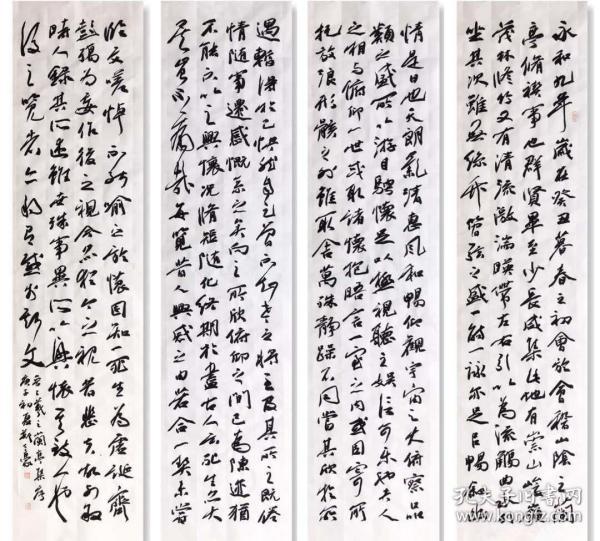 永和九年歲在癸丑暮春之初會於會稽山陰之蘭
亭脩禊事也群賢畢至少長咸集此地有崇山峻嶺
茂林脩竹又有清流激湍映帶左右引以為流觴曲水
坐其次雖無絲竹管弦之盛一觴一詠亦足以暢叙幽
情是日也天朗氣清惠風和暢仰觀宇宙之大俯察品
類之盛所以游目騁懷足以極視聽之娛信可樂也夫人
之相與俯仰一世或取諸懷抱晤言一室之内或因寄所
托放浪形骸之外雖取舍萬殊靜躁不同當其欣於所
遇暫得於己怏然自足曾不知老之將至及其所之既倦
情隨事遷感慨系之矣向之所欣俯仰之間已為陳迹猶
不能不以之興懷况脩短隨化終期於盡古人云死生亦大
矣豈不痛哉每覽昔人興感之由若合一契未嘗
臨文嗟悼不能喻之於懷固知一死生為虛誕齊
彭殤為妄作後之視今亦猶今之視昔悲夫故列叙
時人錄其所述雖世殊事異所以興懷其致一也
後之覽者亦將有感於斯文
王羲之蘭亭集序
庚子初春
孔夫子旧书网